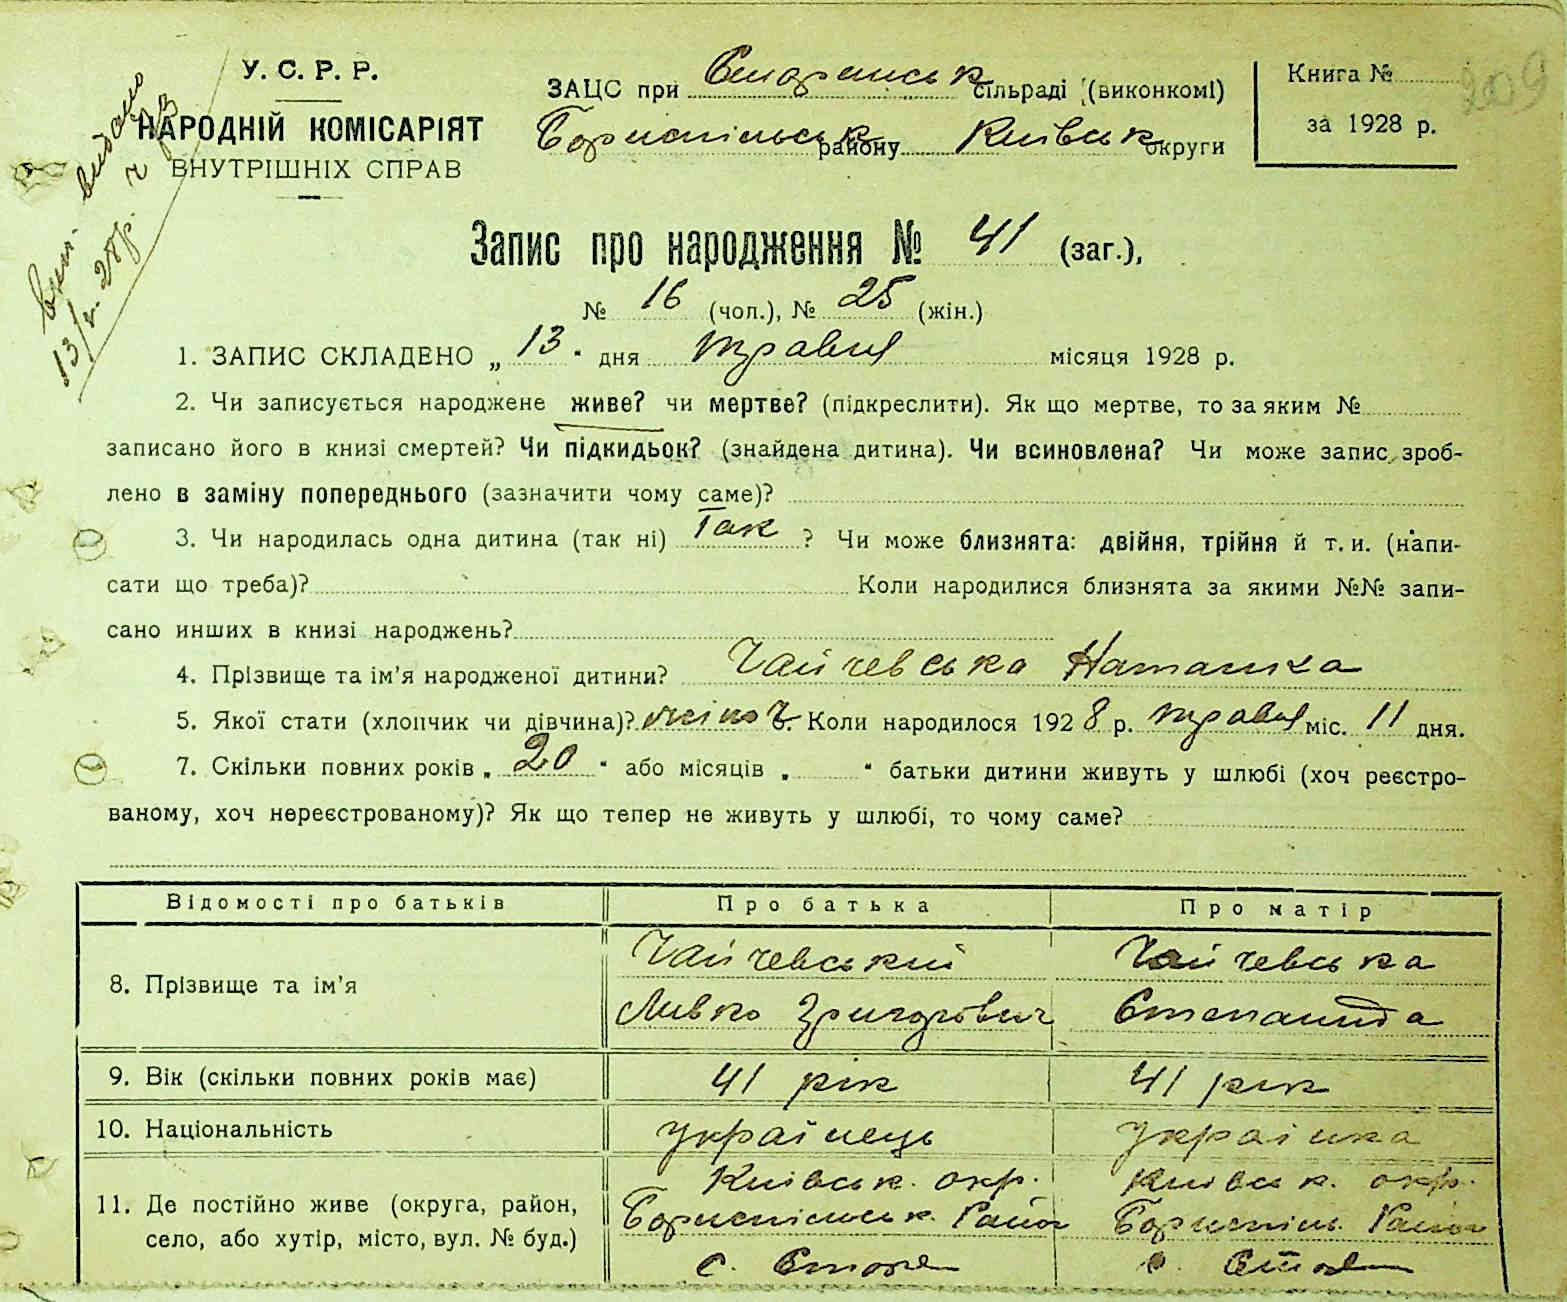 209
У. С. Р. Р.
НАРОДНІЙ КОМІСАРІЯТ
ВНУТРІШНІХ СПРАВ
видано
13/V. 28р.
ЗАЦС при сільраді (виконкомі)
Бориспільськ району Київськ округи
Книга №
за 1928 р.
Запис про народження № 41 (заг.),
№ 16 (чол.), № 25 (жін.)
1. ЗАПИС СКЛАДЕНО „ 13 " дня травня місяця 1928 р.
2. Чи записується народжене живе? чи мертве? (підкреслити). Як що мертве, то за яким №
записано його в книзі смертей? Чи підкидьок? (знайдена дитина). Чи всиновлена? Чи може запис зроб-
лено в заміну попереднього (зазначити чому саме)?
3. Чи народилась одна дитина (так ні) Так ? Чи може близнята: двійня, трійня й т. и. (напи-
сати що треба)? Коли народилися близнята за якими №№ запи-
сано инших в книзі народжень?
4. Прізвище та ім'я народженої дитини? Чайчевська Наталка
5. Якої стати (хлопчик чи дівчина)? жіноч. Коли народилося 1928 р. травня міс. 11 дня.
7. Скільки повних років „ 20 " або місяців „ " батьки дитини живуть у шлюбі (хоч реєстро-
ваному, хоч нереєстрованому)? Як що тепер не живуть у шлюбі, то чому саме?
Відомості про батьків Про батька Про матір
8. Прізвище та ім'я Чайчевський Чайчевська
Ливко Григорович Степанида
9. Вік (скільки повних років має) 41 рік 41 рік
10. Національність українець українка
11. Де постійно живе (округа, район, Київськ. окр. Київськ. окр.
село, або хутір, місто, вул. № буд.) Бориспільськ. Район Бориспіль. Район
с. с.